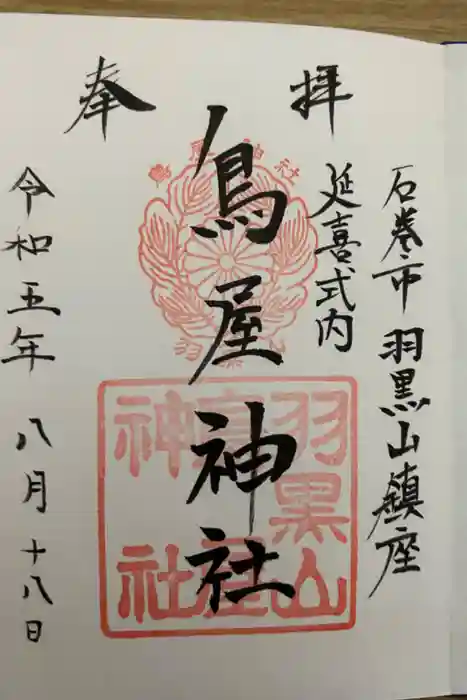 奉拝
石巻市 羽黒山鎮座
延喜式内
鳥屋神社
令和五年 八月十八日
鳥屋神社
羽黒山
鳥屋
神社